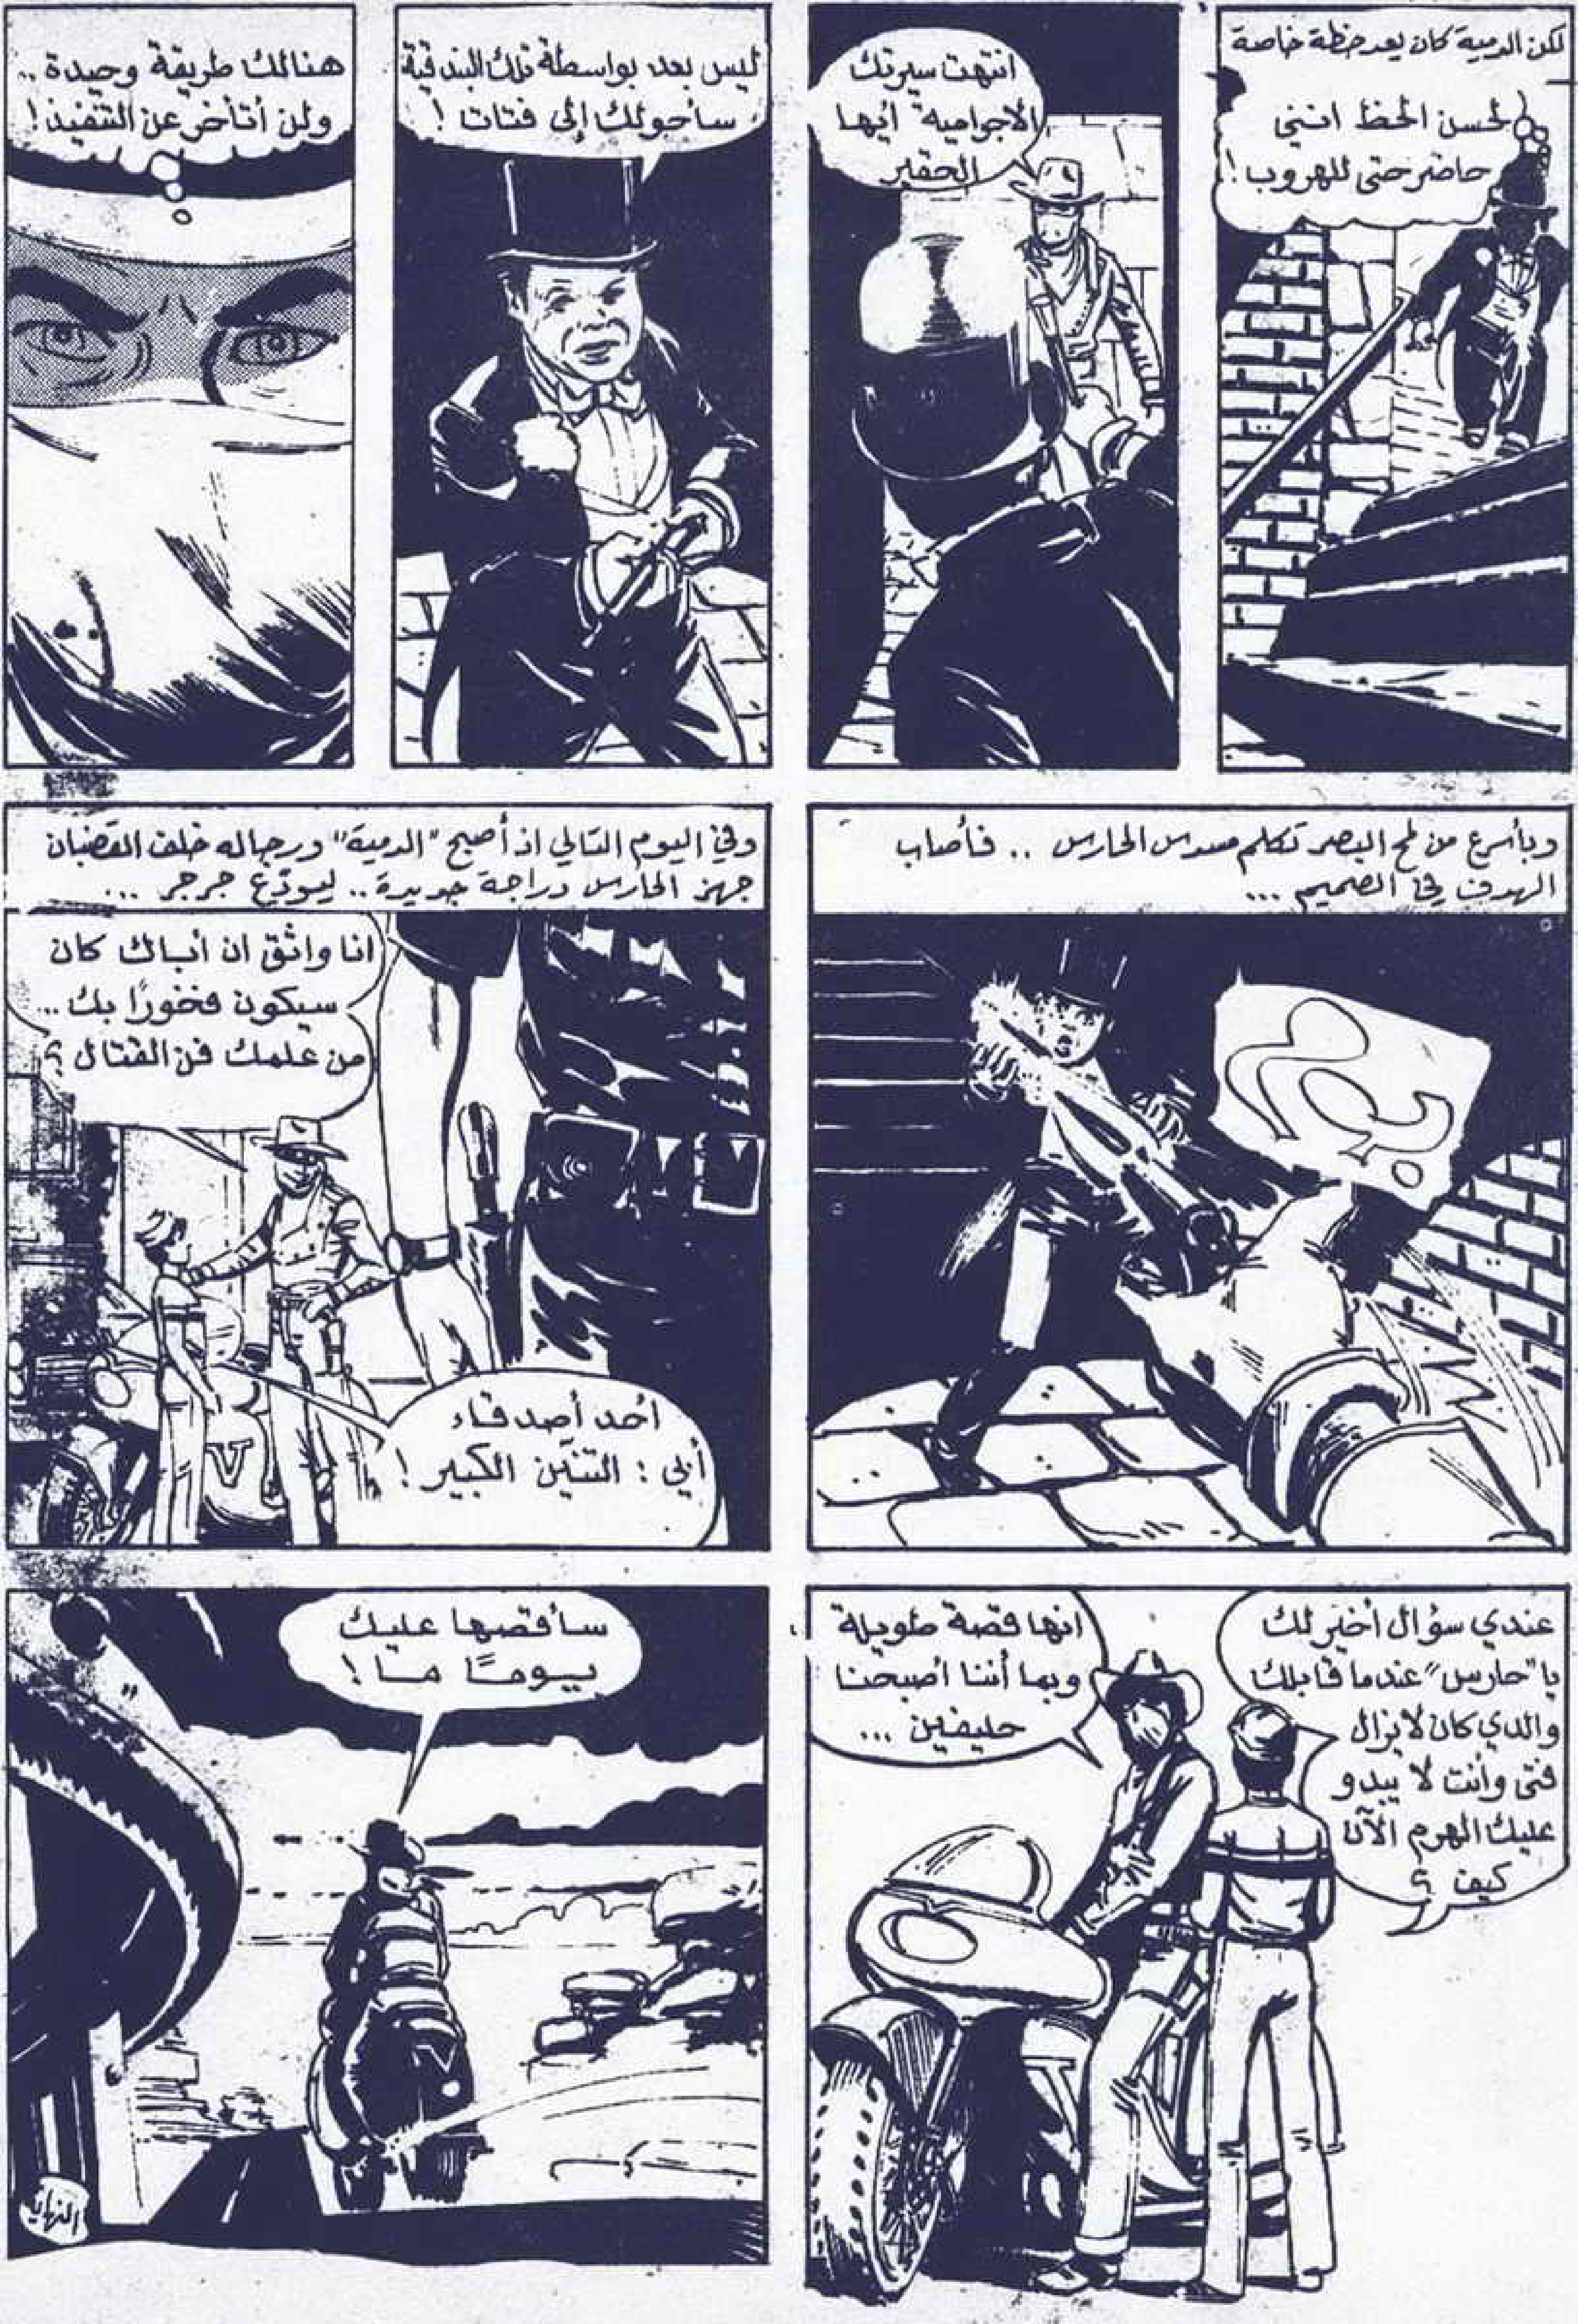 لكن الدمية كان يعد خطة خاصة
لحسن الحظ انني
حاضر حتى للهروب!
انتهت سيرتك
الاجرامية أيها
الحقير
ليس بعد بواسطة تلك البندقية
سأحولك إلى فتات!
هنالك طريقة وحيدة..
ولن أتأخر عن التنفيذ!
وبأسرع من لمح البصر تكلم مسدس الحارس .. فأصاب
الهدف في الصميم ...
وفي اليوم التالي اذ أصبح "الدمية" ورجاله خلف القضبان
جهز الحارس دراجة جديدة.. ليودّع جرجر ...
انا واثق ان أباك كان
سيكون فخورًا بك ...
من علمك فن القتال؟
أحد أصدقاء
أبي : التنّين الكبير!
V
عندي سؤال أخير لك
يا "حارس" عندما قابلك
والدي كان لا يزال
فتى وأنت لا يبدو
عليك الهرم الآن
كيف؟
انها قصة طويلة
وبما أننا أصبحنا
حليفين ...
سأقصها عليك
يومًا ما!
V
النهاية